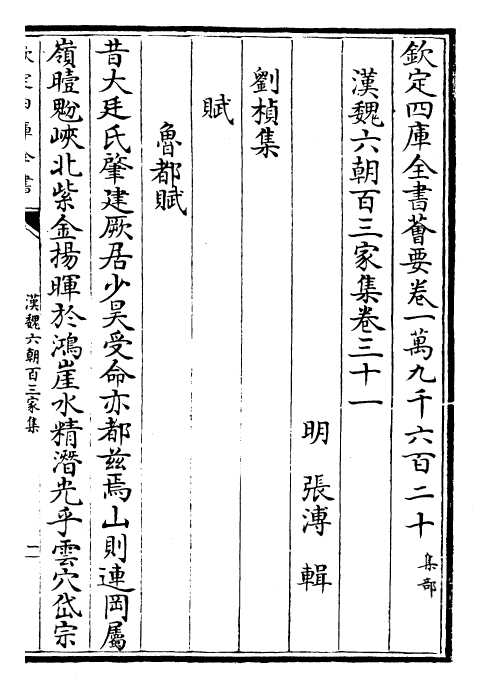 欽定四庫全書薈要卷一萬九千六百二十 集部
漢魏六朝百三家集卷三十一
明 張溥 輯
劉楨集
賦
魯都賦
昔大廷氏肇建厥居少昊受命亦都兹焉山則連岡屬
嶺暟魦峽北紫金揚暉於鴻崖水精潛光乎雲穴岱宗
欽定四庫全書
漢魏六朝百三家集